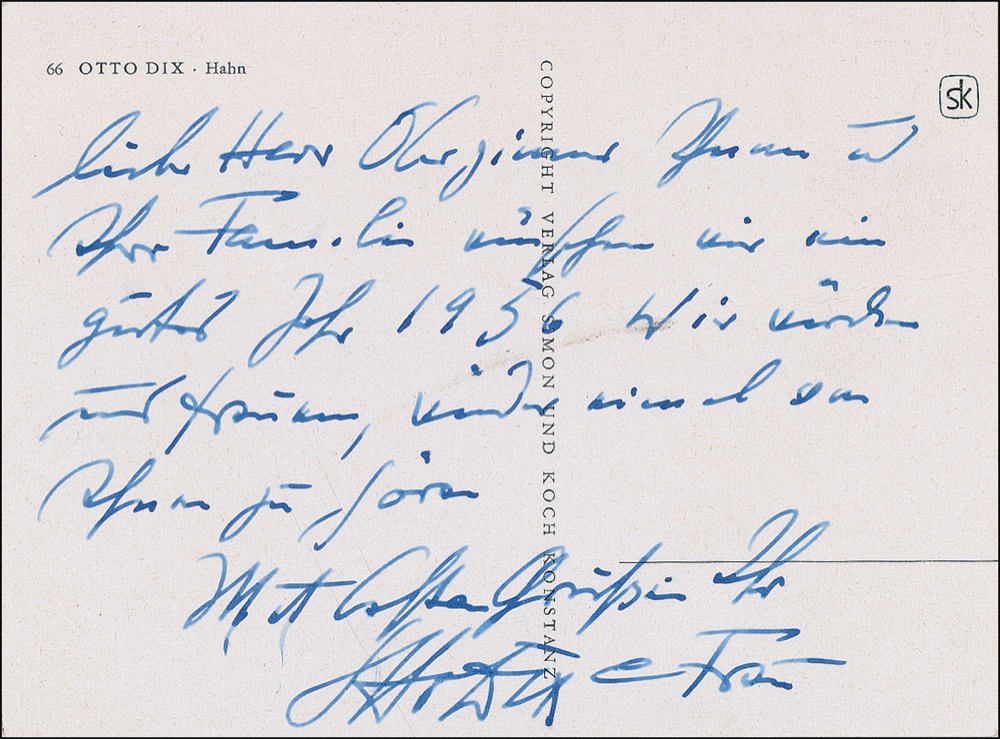 66 OTTO DIX · Hahn
sk
COPYRIGHT VERLAG SIMON UND KOCH KONSTANZ
Lieber Herr Ihnen u
Ihrer Familie wünschen wir ein
gutes Jahr 1956 Wir würden
uns freuen, wieder einmal von
Ihnen zu hören
Mit besten Grüßen Ihr
Otto Dix e Frau